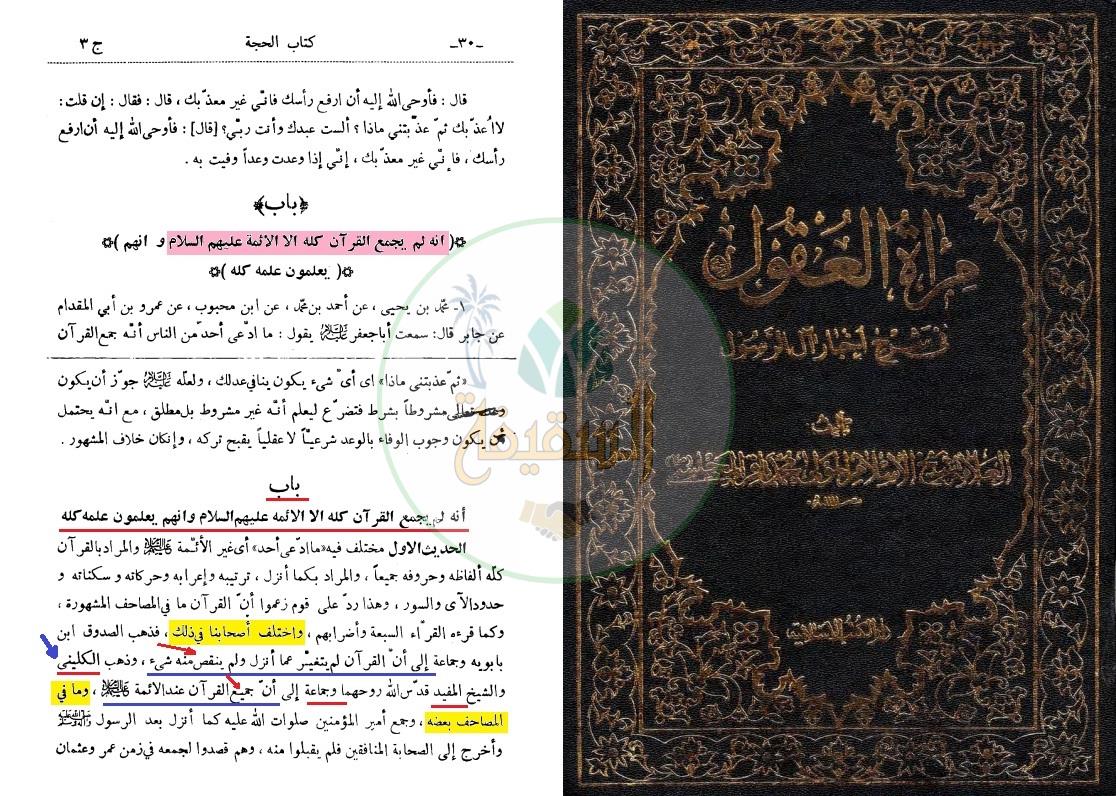 ج ٣ كتاب الحجة -٣٠-
قال : فأوحى الله إليه أن ارفع رأسك فانّي غير معذّبك ، قال : فقال : إن قلت:
لا اُعذّبك ثمّ عذّبتني ماذا ؟ ألست عبدك وأنت ربّي؟ [قال] : فأوحى الله إليه أن ارفع
رأسك ، فانّي غير معذّبك ، إنّي إذا وعدت وعداً وفيت به .
﴿باب﴾
( انه لم يجمع القرآن كله الا الائمة عليهم السلام و انهم )
( يعلمون علمه كله )
١- محمّد بن يحيى ، عن أحمد بن محمّد ، عن ابن محبوب ، عن عمرو بن أبي المقدام
عن جابر قال : سمعت أبا جعفر عليه السلام يقول : ما ادّعى أحد من الناس أنّه جمع القرآن
«ثمّ عذبتنى ماذا» اى أىّ شىء يكون ينافي عدلك ، ولعلّه عليه السلام جوّز أن يكون
وعده تعالى مشروطاً بشرط فتضرّع ليعلم أنّه غير مشروط بل مطلق ، مع انه يحتمل
أن يكون وجوب الوفاء بالوعد شرعيّاً لا عقلياً يقبح تركه ، وإن كان خلاف المشهور .
باب
أنه لم يجمع القرآن كله الا الائمه عليهم السلام وانهم يعلمون علمه كله
الحديث الاول مختلف فيه «ما ادّعى أحد» أى غير الأئمّة عليهم السلام والمراد بالقرآن
كلّه ألفاظه وحروفه جميعاً ، والمراد بكما أنزل ، ترتيبه وإعرابه وحركاته و سكناته و
حدود الآى والسور ، وهذا ردّ على قوم زعموا أنّ القرآن ما في المصاحف المشهورة ،
وكما قرءه القرّاء السبعة وأضرابهم ، واختلف أصحابنا في ذلك ، فذهب الصدوق ابن
بابويه وجماعة إلى أنّ القرآن لم يتغيّر عما أنزل ولم ينقص منه شىء ، وذهب الكلينى
والشيخ المفيد قدّس الله روحهما وجماعة إلى أنّ جميع القرآن عند الائمة عليهم السلام ، وما في
المصاحف بعضه ، وجمع أمير المؤمنين صلوات الله عليه كما أنزل بعد الرسول صلى الله عليه وآله
وأخرج إلى الصحابة المنافقين فلم يقبلوا منه ، وهم قصدوا لجمعه في زمن عمر وعثمان
مرآة العقول
في شرح أخبار آل الرسول
تأليف
العلامة شيخ الإسلام المولى محمد باقر المجلسي
دار الكتب الإسلامية
السقيفة